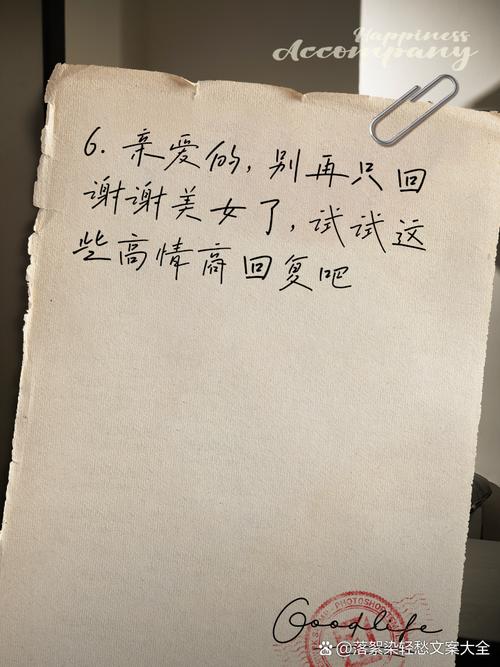 Happiness
Accompany
6. 亲爱的,别再只回
谢谢美女了,试试这
些高情商回复吧
PHOTOSHOP
Goodlife
@落絮染轻愁文案大全